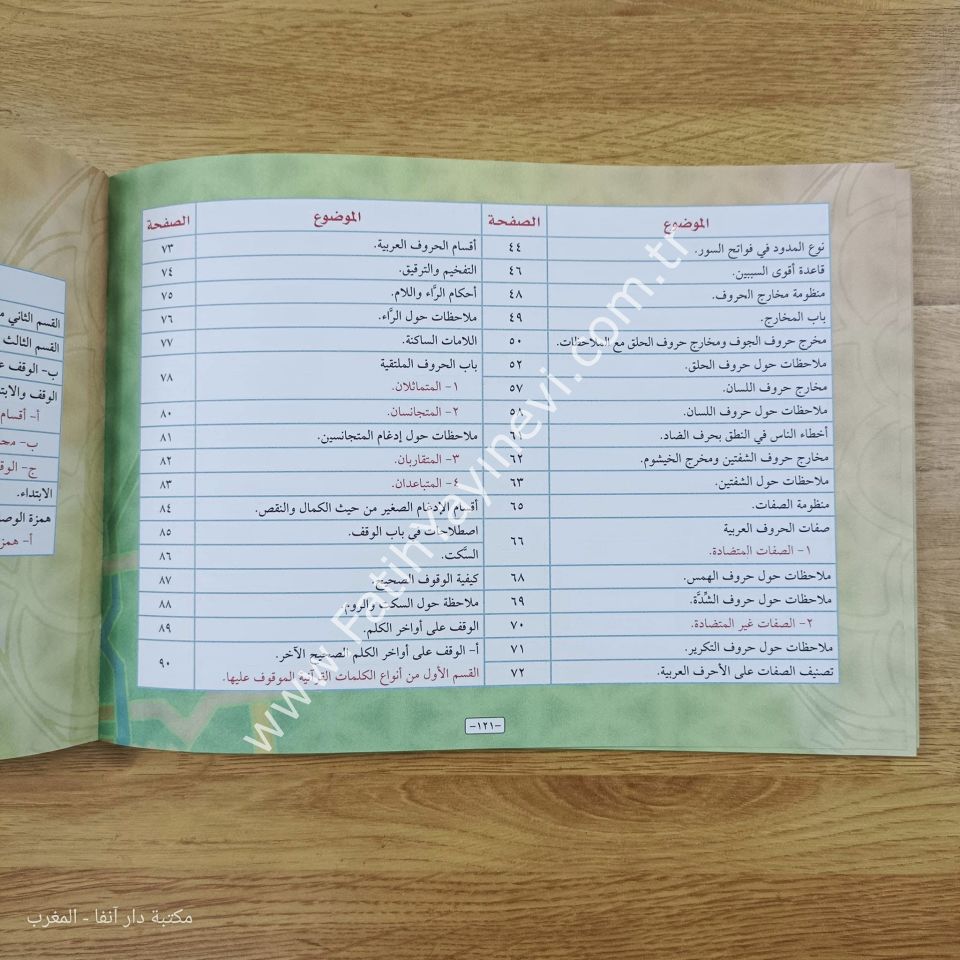 الموضوع الصفحة
نوع المدود في فواتح السور. ٤٤
قاعدة أقوى السببين. ٤٦
منظومة مخارج الحروف. ٤٨
باب المخارج. ٤٩
مخرج حروف الجوف ومخارج حروف الحلق مع الملاحظات. ٥٠
ملاحظات حول حروف الحلق. ٥٢
مخارج حروف اللسان. ٥٧
ملاحظات حول حروف اللسان.
أخطاء الناس في النطق بحرف الضاد.
مخارج حروف الشفتين ومخرج الخيشوم. ٦٢
ملاحظات حول الشفتين. ٦٣
منظومة الصفات. ٦٥
صفات الحروف العربية ٦٦
١- الصفات المتضادة.
ملاحظات حول حروف الهمس. ٦٨
ملاحظات حول حروف الشِّدَّة. ٦٩
٢- الصفات غير المتضادة. ٧٠
ملاحظات حول حروف التكرير. ٧١
تصنيف الصفات على الأحرف العربية. ٧٢
الموضوع الصفحة
أقسام الحروف العربية. ٧٣
التفخيم والترقيق. ٧٤
أحكام الرَّاء واللام. ٧٥
ملاحظات حول الرَّاء. ٧٦
اللامات الساكنة. ٧٧
باب الحروف الملتقية ٧٨
١- المتماثلان.
٢- المتجانسان. ٨٠
ملاحظات حول إدغام المتجانسين. ٨١
٣- المتقاربان. ٨٢
٤- المتباعدان. ٨٣
أقسام الإدغام الصغير من حيث الكمال والنقص. ٨٤
اصطلاحات في باب الوقف. ٨٥
السَّكت. ٨٦
كيفية الوقوف الصحيح. ٨٧
ملاحظة حول السكت والروم. ٨٨
الوقف على أواخر الكلم. ٨٩
أ- الوقف على أواخر الكلم الصحيح الآخر. ٩٠
القسم الأول من أنواع الكلمات القرآنية الموقوف عليها.
-١٢١-
القسم الثاني
القسم الثالث
ب- الوقف
الوقف
أ- أقسام
ب-
ج-
الابتداء.
همزة
أ-
www.Fatihyayinevi.com.tr
مكتبة دار آنفا - المغرب